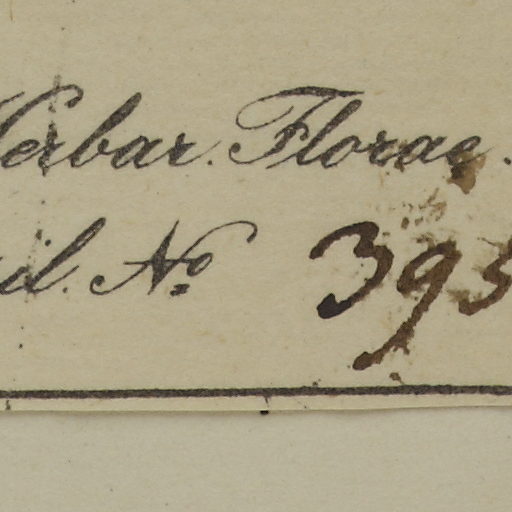 Herbar. Florae.
il. No 393